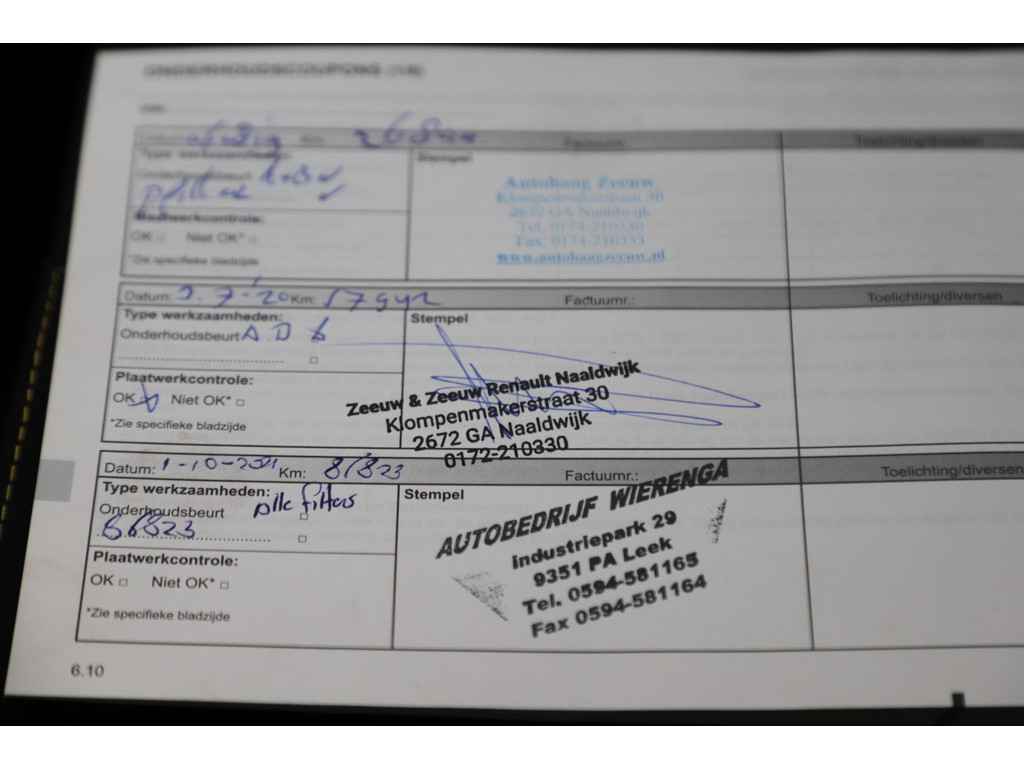 ONDERHOUDSCOUPONS
Factuurnr. Toelichting/diversen
Type werkzaamheden: Stempel
Onderhoudsbeurt
Plaatwerkcontrole:
OK Niet OK*
*Zie specifieke bladzijde
Autohaag Zeeuw
Klompenmakerstraat 30
2672 GA Naaldwijk
Tel. 0174-210330
Fax: 0174-210333
www.autohaagzeeuw.nl
Datum: 3.7-'20 Km: Factuurnr.: Toelichting/diversen
Type werkzaamheden: Stempel
Onderhoudsbeurt A D
Plaatwerkcontrole:
OK Niet OK*
*Zie specifieke bladzijde
Zeeuw & Zeeuw Renault Naaldwijk
Klompenmakerstraat 30
2672 GA Naaldwijk
0172-210330
Datum: 1-10-2021 Km: 81823 Factuurnr.: Toelichting/diversen
Type werkzaamheden: Stempel
Onderhoudsbeurt Alle filters
Plaatwerkcontrole:
OK Niet OK*
*Zie specifieke bladzijde
AUTOBEDRIJF WIERENGA
Industriepark 29
9351 PA Leek
Tel. 0594-581165
Fax 0594-581164
6.10